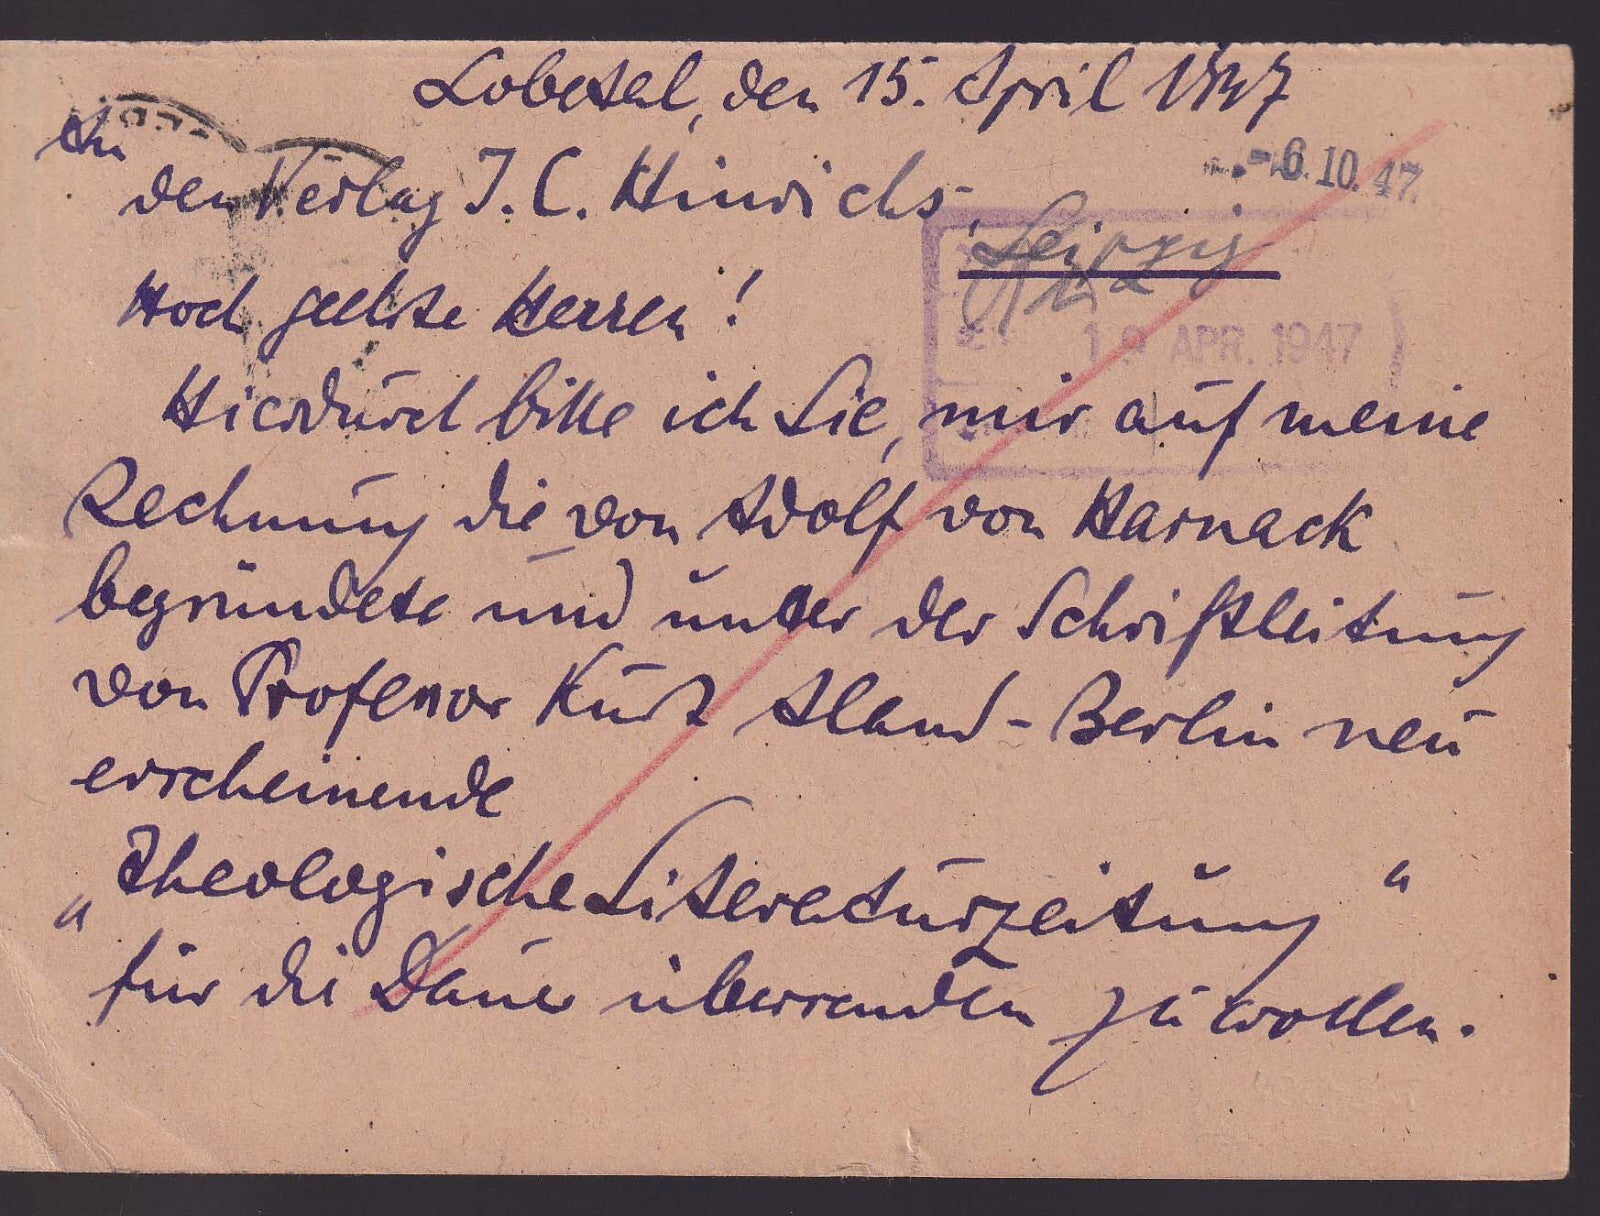 Lobetal, den 15. April 1947
An
den Verlag J. C. Hinrichs,
-6.10.47.
Leipzig
Hoch geehrte Herren!
19. APR. 1947
Hierdurch bitte ich Sie, mir auf meine
Rechnung die von Adolf von Harnack
begründete und unter der Schriftleitung
von Professor Kurt Aland-Berlin neu
erscheinende
„Theologische Literaturzeitung“
für die Dauer übersenden zu wollen.